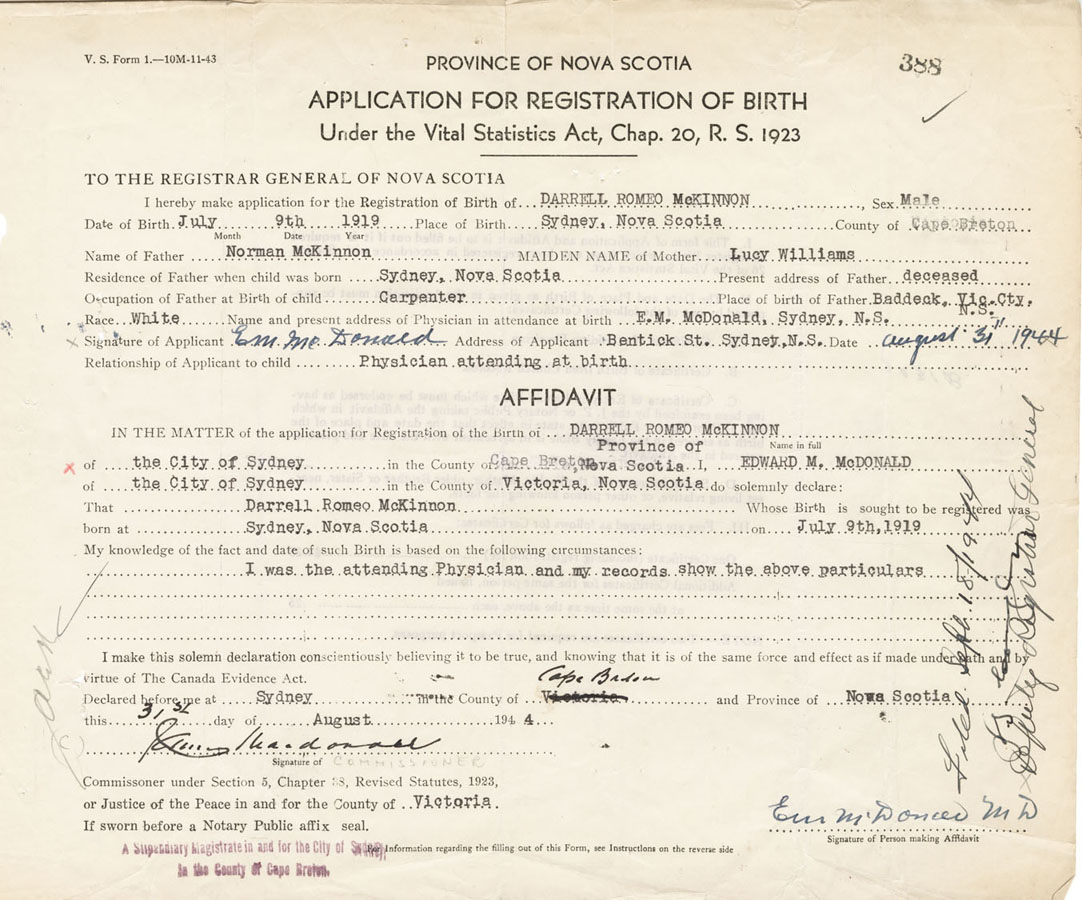 V. S. Form 1.—10M-11-43
PROVINCE OF NOVA SCOTIA
388
APPLICATION FOR REGISTRATION OF BIRTH
Under the Vital Statistics Act, Chap. 20, R. S. 1923
TO THE REGISTRAR GENERAL OF NOVA SCOTIA
I hereby make application for the Registration of Birth of DARRELL ROMEO McKINNON, Sex Male
Date of Birth July 9th 1919 Place of Birth Sydney, Nova Scotia County of Cape Breton
Month Date Year
Name of Father Norman McKinnon MAIDEN NAME of Mother Lucy Williams
Residence of Father when child was born Sydney, Nova Scotia Present address of Father deceased
Occupation of Father at Birth of child Carpenter Place of birth of Father Baddeck, Vic. Cty.
N.S.
Race White Name and present address of Physician in attendance at birth E.M. McDonald, Sydney, N.S.
x Signature of Applicant E m. Mc Donald Address of Applicant Bentick St. Sydney, N.S. Date august 31st 1944
Relationship of Applicant to child Physician attending at birth
AFFIDAVIT
IN THE MATTER of the application for Registration of the Birth of DARRELL ROMEO McKINNON
Province of Name in full
x of the City of Sydney in the County of Cape Breton, Nova Scotia I, EDWARD M. McDONALD
of the City of Sydney in the County of Victoria, Nova Scotia do solemnly declare:
That Darrell Romeo McKinnon Whose Birth is sought to be registered was
born at Sydney, Nova Scotia on July 9th, 1919
My knowledge of the fact and date of such Birth is based on the following circumstances:
I was the attending Physician and my records show the above particulars
I make this solemn declaration conscientiously believing it to be true, and knowing that it is of the same force and effect as if made under oath and by
virtue of The Canada Evidence Act.
Cape Breton
Declared before me at Sydney in the County of Victoria and Province of Nova Scotia
this 31st day of August 1944
Signature of COMMISSIONER
Commissoner under Section 5, Chapter 38, Revised Statutes, 1923,
or Justice of the Peace in and for the County of Victoria.
If sworn before a Notary Public affix seal.
Em McDonald M D
Signature of Person making Affidavit
A Stipendiary Magistrate in and for the City of Sydney,
in the County of Cape Breton.
For Information regarding the filling out of this Form, see Instructions on the reverse side
Filed Sept. 18/1944
Deputy Registrar General